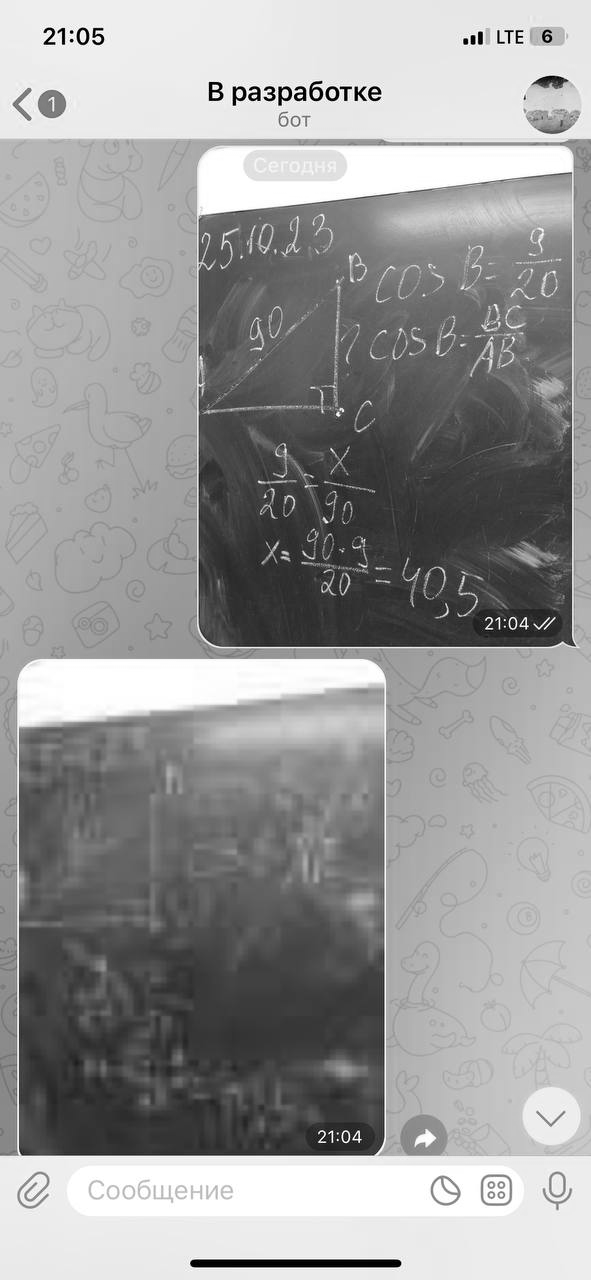 21:05
LTE 6
1
В разработке
бот
Сегодня
25.10.23
B
cos B = 9/20
90
? cos B = BC/AB
A
C
9/20 = x/90
x = 90·9/20 = 40,5
21:04
21:04
Сообщение